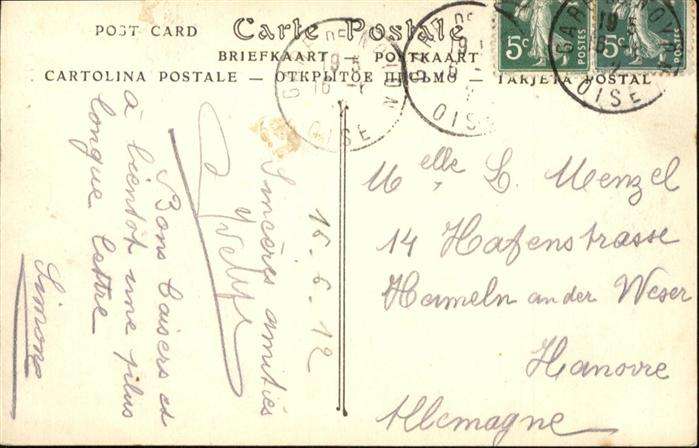 POST CARD
Carte Postale
BRIEFKAART — POSTKAART
CARTOLINA POSTALE — ОТКРЫТОЕ ПИСЬМО — TARJETA POSTAL
5c
POSTES
5c
POSTES
OISE
OISE
OISE
Melle L. Menzel
14 Hafenstrasse
Hameln an der Weser
Hanovre
Allemagne
15.6.12
Sincères amitiés
Bons baisers et
à bientôt une plus
longue lettre
Simone